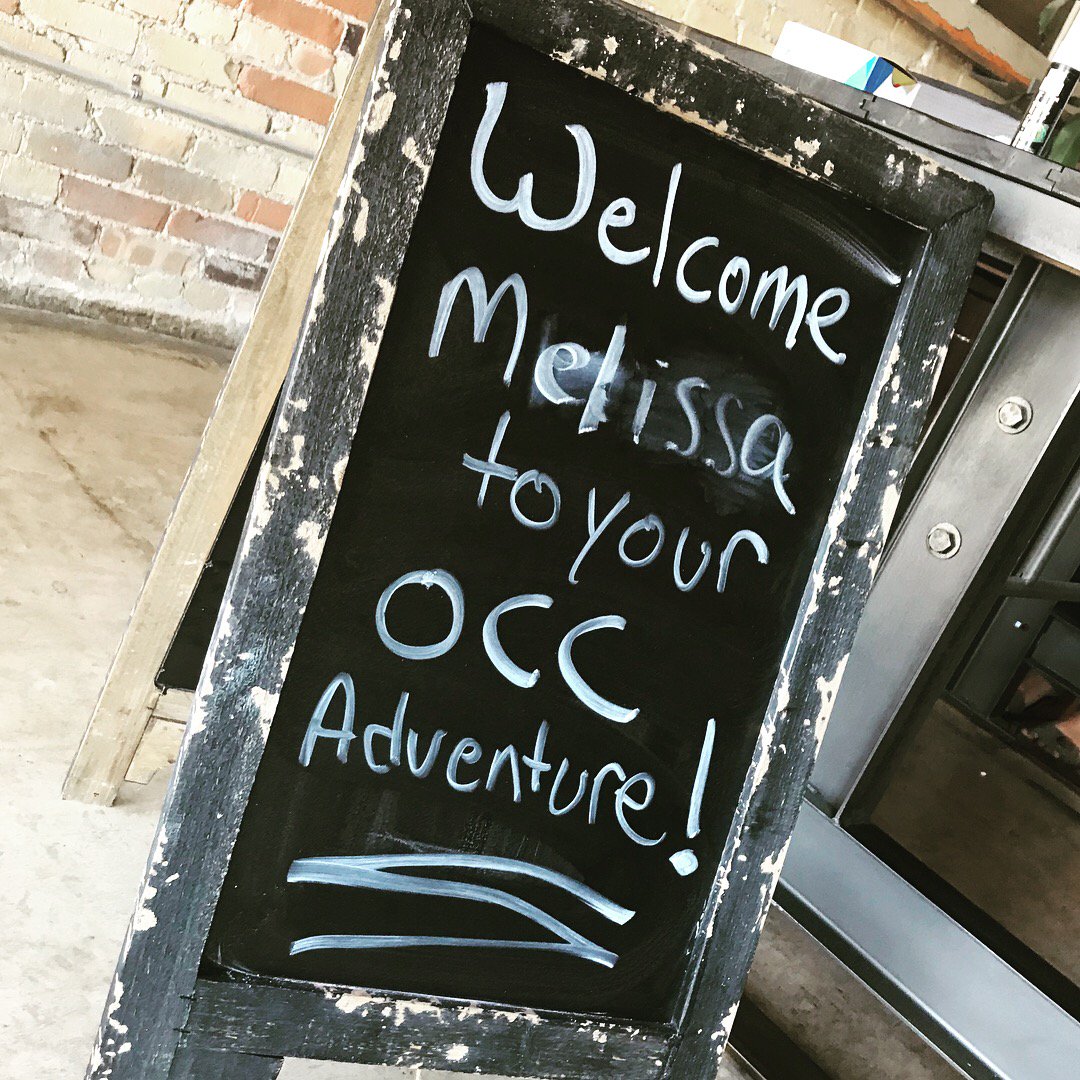 Welcome
Melissa
to your
OCC
Adventure!